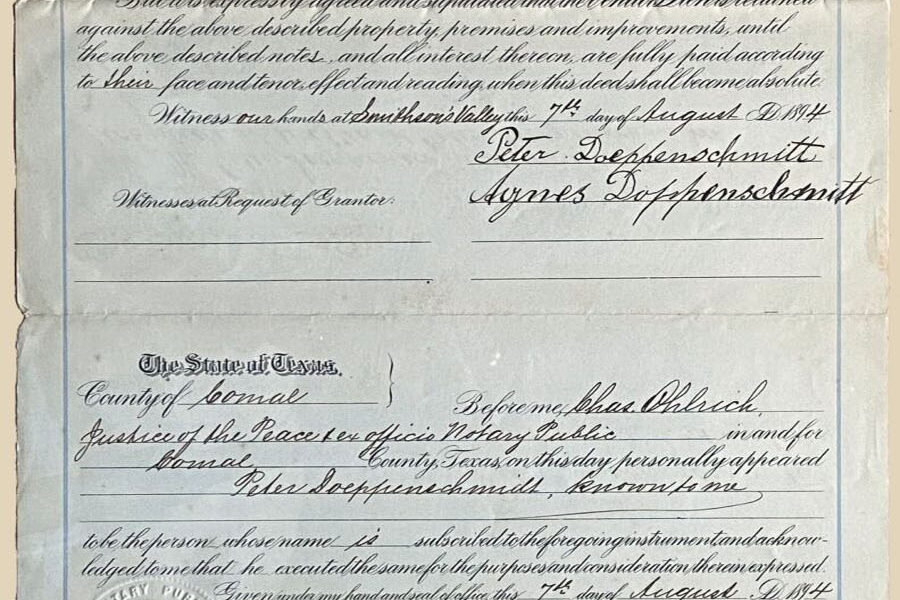 But it is expressly agreed and stipulated that the Vendor's Lien is retained
against the above described property, premises and improvements, until
the above described notes, and all interest thereon, are fully paid according
to their face and tenor, effect and reading, when this deed shall become absolute.
Witness our hands at Smithson's Valley this 7th day of August A.D. 1894
Peter Doeppenschmitt
Agnes Doppenschmitt
Witnesses at Request of Grantor:
The State of Texas,
County of Comal
Before me, Chas. Ohlrich,
Justice of the Peace & ex officio Notary Public in and for
Comal County, Texas, on this day personally appeared
Peter Doeppenschmidt, known to me
to be the person whose name is subscribed to the foregoing instrument and acknow-
ledged to me that he executed the same for the purposes and consideration therein expressed.
Given under my hand and seal of office, this 7th day of August A.D. 1894
TARY PUB